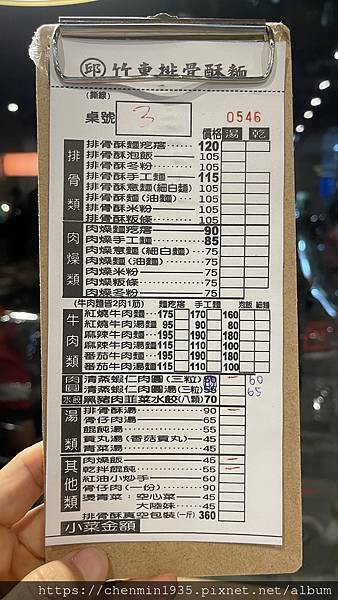 邱 竹東排骨酥麵
(撕線)
桌號 3 0546
價格 湯 乾
排骨類
排骨酥麵疙瘩 120
排骨酥泡飯 105
排骨酥冬粉 105
排骨酥手工麵 115
排骨酥意麵(細白麵) 105
排骨酥麵(油麵) 105
排骨酥米粉 105
排骨酥粄條 105
肉燥類
肉燥麵疙瘩 90
肉燥手工麵 85
肉燥意麵(細白麵) 75
肉燥麵(油麵) 75
肉燥米粉 75
肉燥粄條 75
肉燥冬粉 75
(牛肉麵皆2肉1筋) 麵疙瘩 手工麵 泡飯 細麵
牛肉類
紅燒牛肉麵 175 170 160
紅燒牛肉湯麵 95 90 80
麻辣牛肉麵 195 190 180
麻辣牛肉湯麵 115 110 100
番茄牛肉麵 195 190 180
番茄牛肉湯麵 115 110 100
肉圓 清蒸蝦仁肉圓(三粒) 60
清蒸蝦仁肉圓湯(三粒) 65
水餃 黑豬肉韭菜水餃(八顆) 70
湯類
排骨酥湯 90
骨仔肉湯 65
餛飩湯 55
貢丸湯(香菇貢丸) 45
青菜湯 45
其他類
肉燥飯 45
乾拌餛飩 55
紅油小炒手 60
骨仔肉(一份) 90
燙青菜：空心菜 45
大陸妹 45
排骨酥真空包裝(一斤) 360
小菜金額
https://chenmin1935.pixnet.net/album